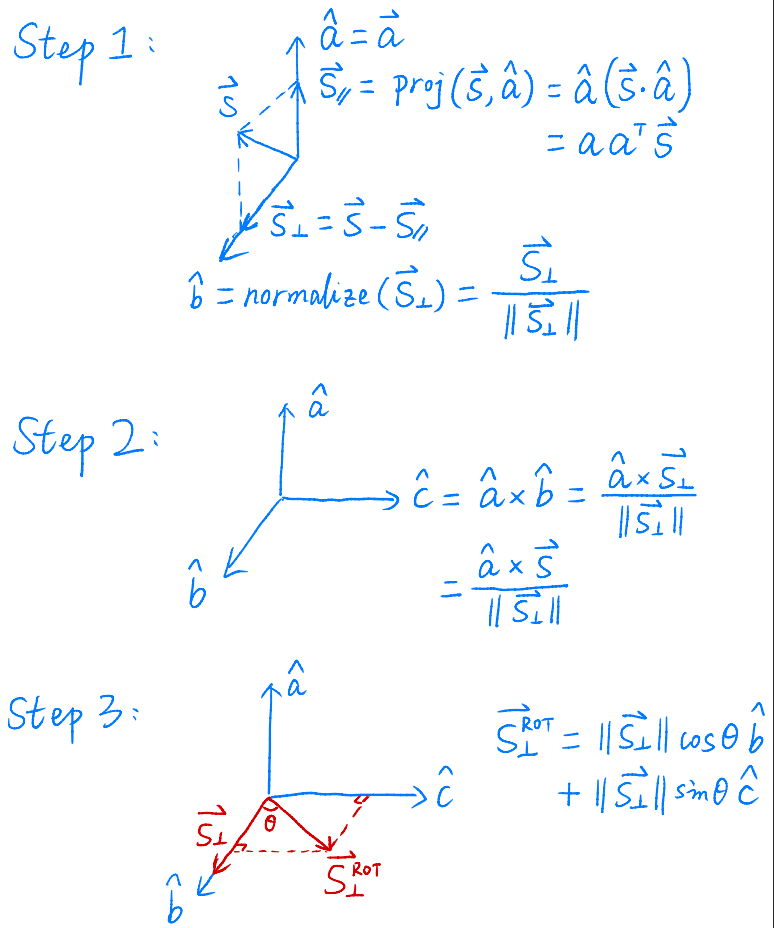 Step 1:
â = a⃗
s⃗
s⃗⫽ = proj(s⃗, â) = â(s⃗·â)
= a aᵀ s⃗
s⃗⊥ = s⃗ − s⃗⫽
b̂ = normalize(s⃗⊥) = s⃗⊥ / ‖s⃗⊥‖
Step 2:
â
ĉ = â × b̂ = â × s⃗⊥ / ‖s⃗⊥‖
b̂
= â × s⃗ / ‖s⃗⊥‖
Step 3:
â
s⃗⊥ᴿᴼᵀ = ‖s⃗⊥‖ cosθ b̂
+ ‖s⃗⊥‖ sinθ ĉ
ĉ
s⃗⊥
θ
s⃗⊥ᴿᴼᵀ
b̂